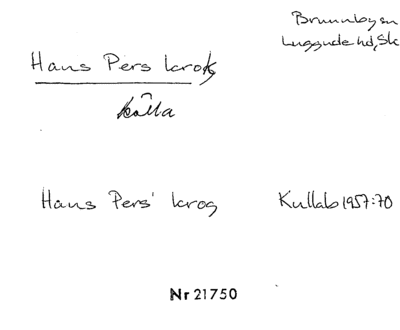 Brunnby sn
Luggude hd, Sk
Hans Pers krog
källa
Hans Pers' krog
Kullab 1957:70
Nr 21750